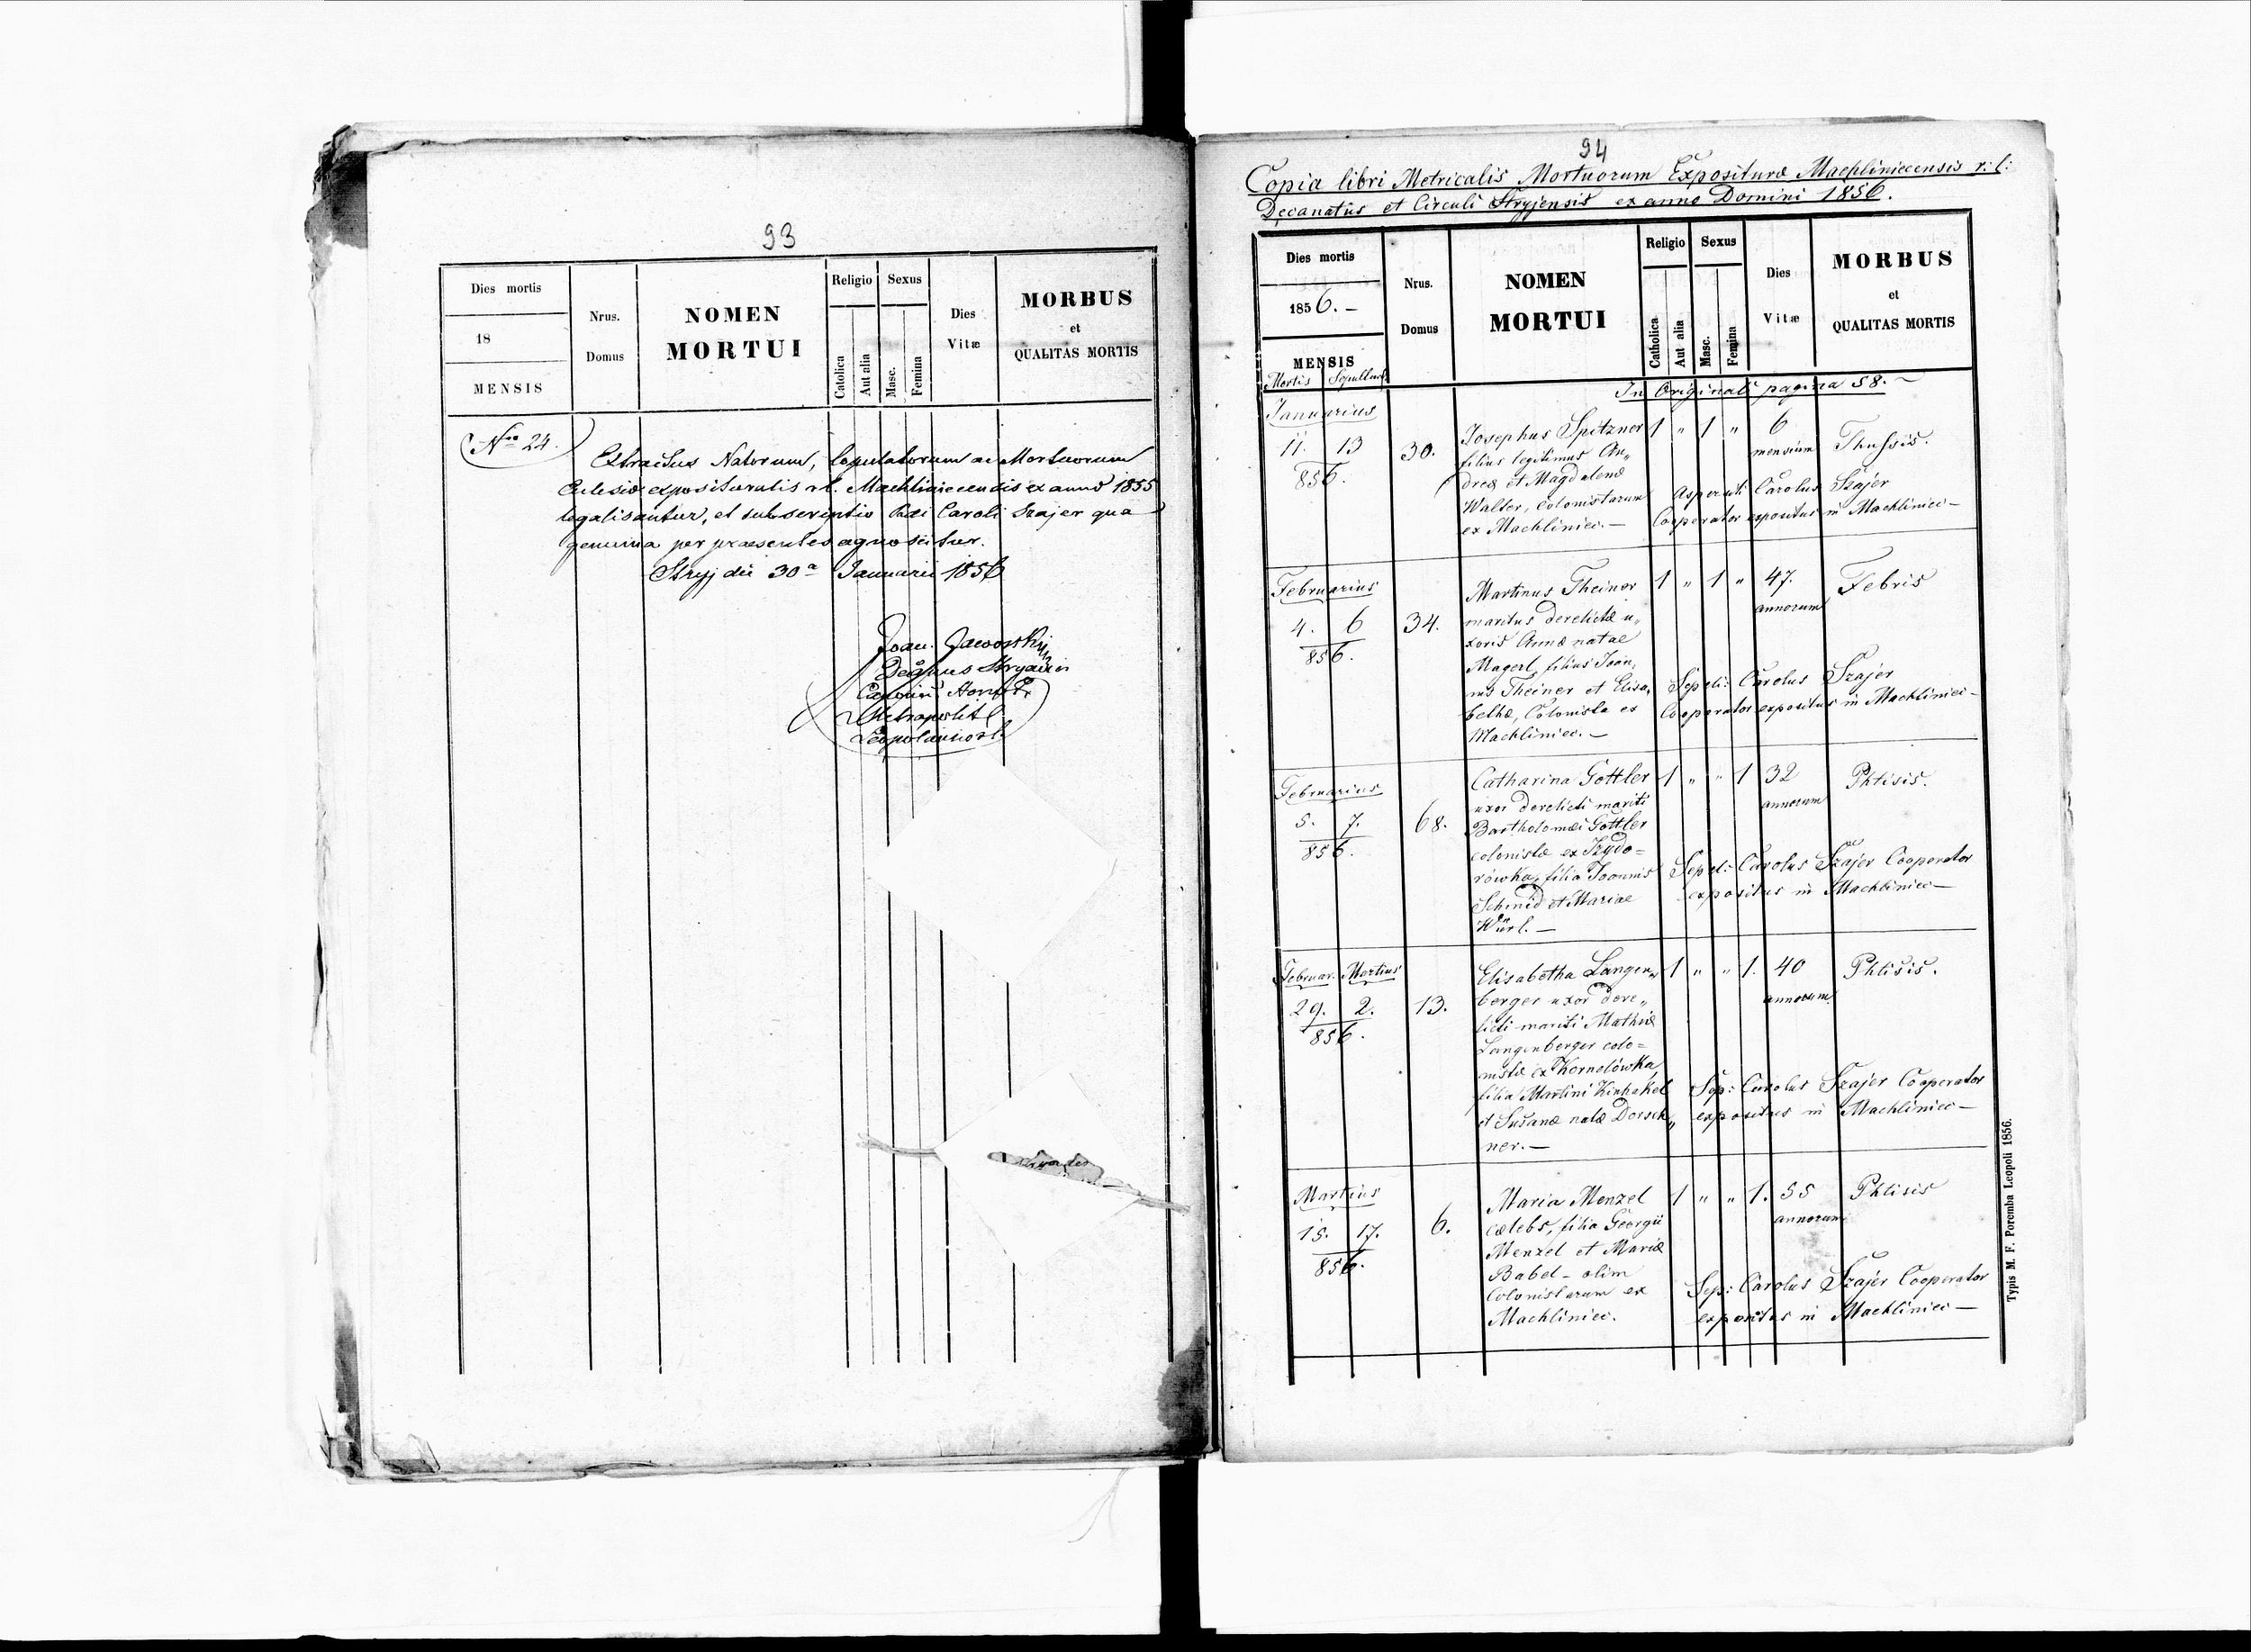 93
Dies mortis
18
MENSIS
Nrus.
Domus
NOMEN
MORTUI
Religio
Catolica
Aut alia
Sexus
Masc.
Femina
Dies
Vitæ
MORBUS
et
QUALITAS MORTIS
Nro 24.
Extractus Natorum, Copulatorum ac Mortuorum
Ecclesiæ expositurалis r.l. Machliniecensis ex anno 1855
legalisantur, et subscriptio Caroli Szajer qua
genuina per praesentes agnoscitur.
Stryj die 30a Januarii 1856
Joan. Jaworski
Decanus Stryiensis
Canonicus Honor.
Metropolit.
94
Copia libri Metricalis Mortuorum Exposituræ Machliniecensis r: l:
Decanatûs et Circuli Stryjensis ex anno Domini 1856.
Dies mortis
1856. –
MENSIS
Mortis Sepulturæ
Nrus.
Domus
NOMEN
MORTUI
Religio
Catholica
Aut alia
Sexus
Masc.
Femina
Dies
Vitæ
MORBUS
et
QUALITAS MORTIS
In Originali pagina 58. –
Januarius
11. 13
856.
30.
Josephus Spitzner
filius legitimus An„
dreæ et Magdalenæ
Walter, Colonistarum
ex Machliniec. –
1 „ 1 „
6
mensium
Thussis.
Carolus Szajer
Cooperator expositus in Machliniec –
Februarius
4. 6
856.
34.
Martinus Theiner
maritus derelictæ u„
xoris Annæ natae
Magerl, filius Joan„
nis Theiner et Elisa„
bethæ, Colonista ex
Machliniec. –
1 „ 1 „
47.
annorum
Febris
Sepeli: Carolus Szajer
Cooperator expositus in Machliniec –
Februarius
5. 7.
856.
68.
Catharina Gottler
uxor derelicti mariti
Bartholomæi Gottler
colonistæ ex Izydo=
rówka, filia Joannis
Schmid et Mariae
Würl. –
1 „ „ 1
32
annorum
Phtisis.
Sepel: Carolus Szajer Cooperator
expositus in Machliniec –
Februar. Martius
29. 2.
856.
13.
Elisabetha Langen„
berger uxor dere„
licti mariti Mathiæ
Langenberger colo=
nistæ ex Kornelówka,
filia Martini
et Susanæ natæ Dorsch„
ner. –
1 „ „ 1.
40
annorum
Phtisis.
Sep: Carolus Szajer Cooperator
expositus in Machliniec –
Martius
15. 17.
856.
6.
Maria Menzel
cœlebs, filia Georgii
Menzel et Mariæ
Babel – olim
Colonistarum ex
Machliniec.
1 „ „ 1.
55
annorum
Phtisis
Sep: Carolus Szajer Cooperator
expositus in Machliniec –
Typis M. F. Poremba Leopoli 1856.